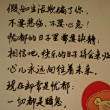 假如生活欺骗了你,
不要悲伤,不要心急!
忧郁的日子里需要镇静
相信吧,快乐的日子将会来临
心儿永远向往着未来,
现在却常是忧郁。
一切都是瞬息,